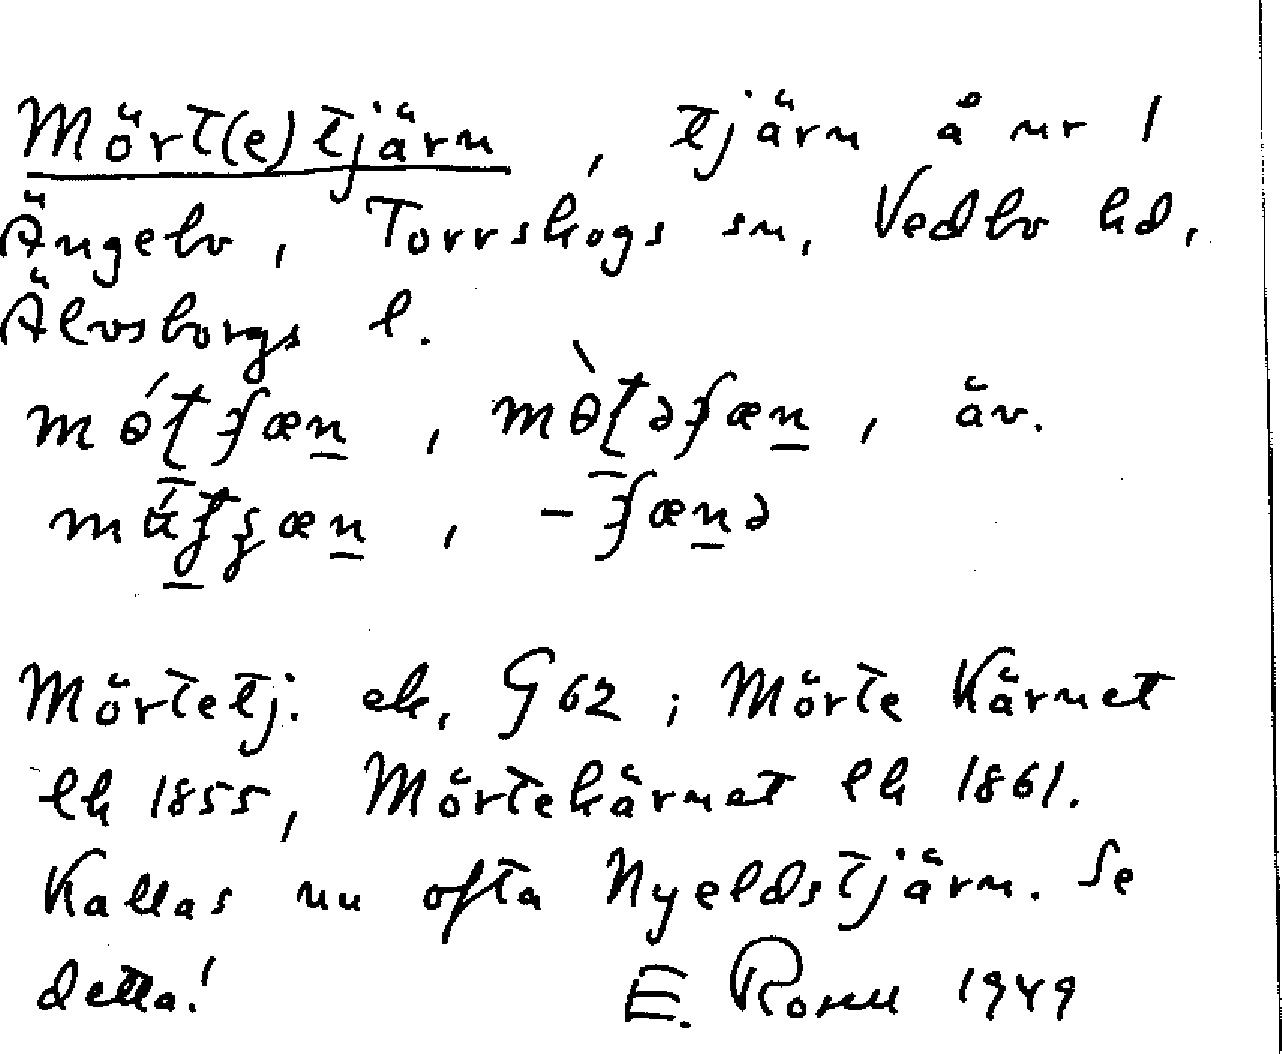 Mört(e)tjärn, tjärn å nr 1
Ängebo, Torrskogs sn, Vedbo hd,
Älvsborgs l.
äv.
Mörtetj. ek. G 62; Mörte Kärnet
lk 1855, Mörtekärnet lk 1861.
Kallas nu ofta Nyeldstjärn. Se
detta! E. 1949